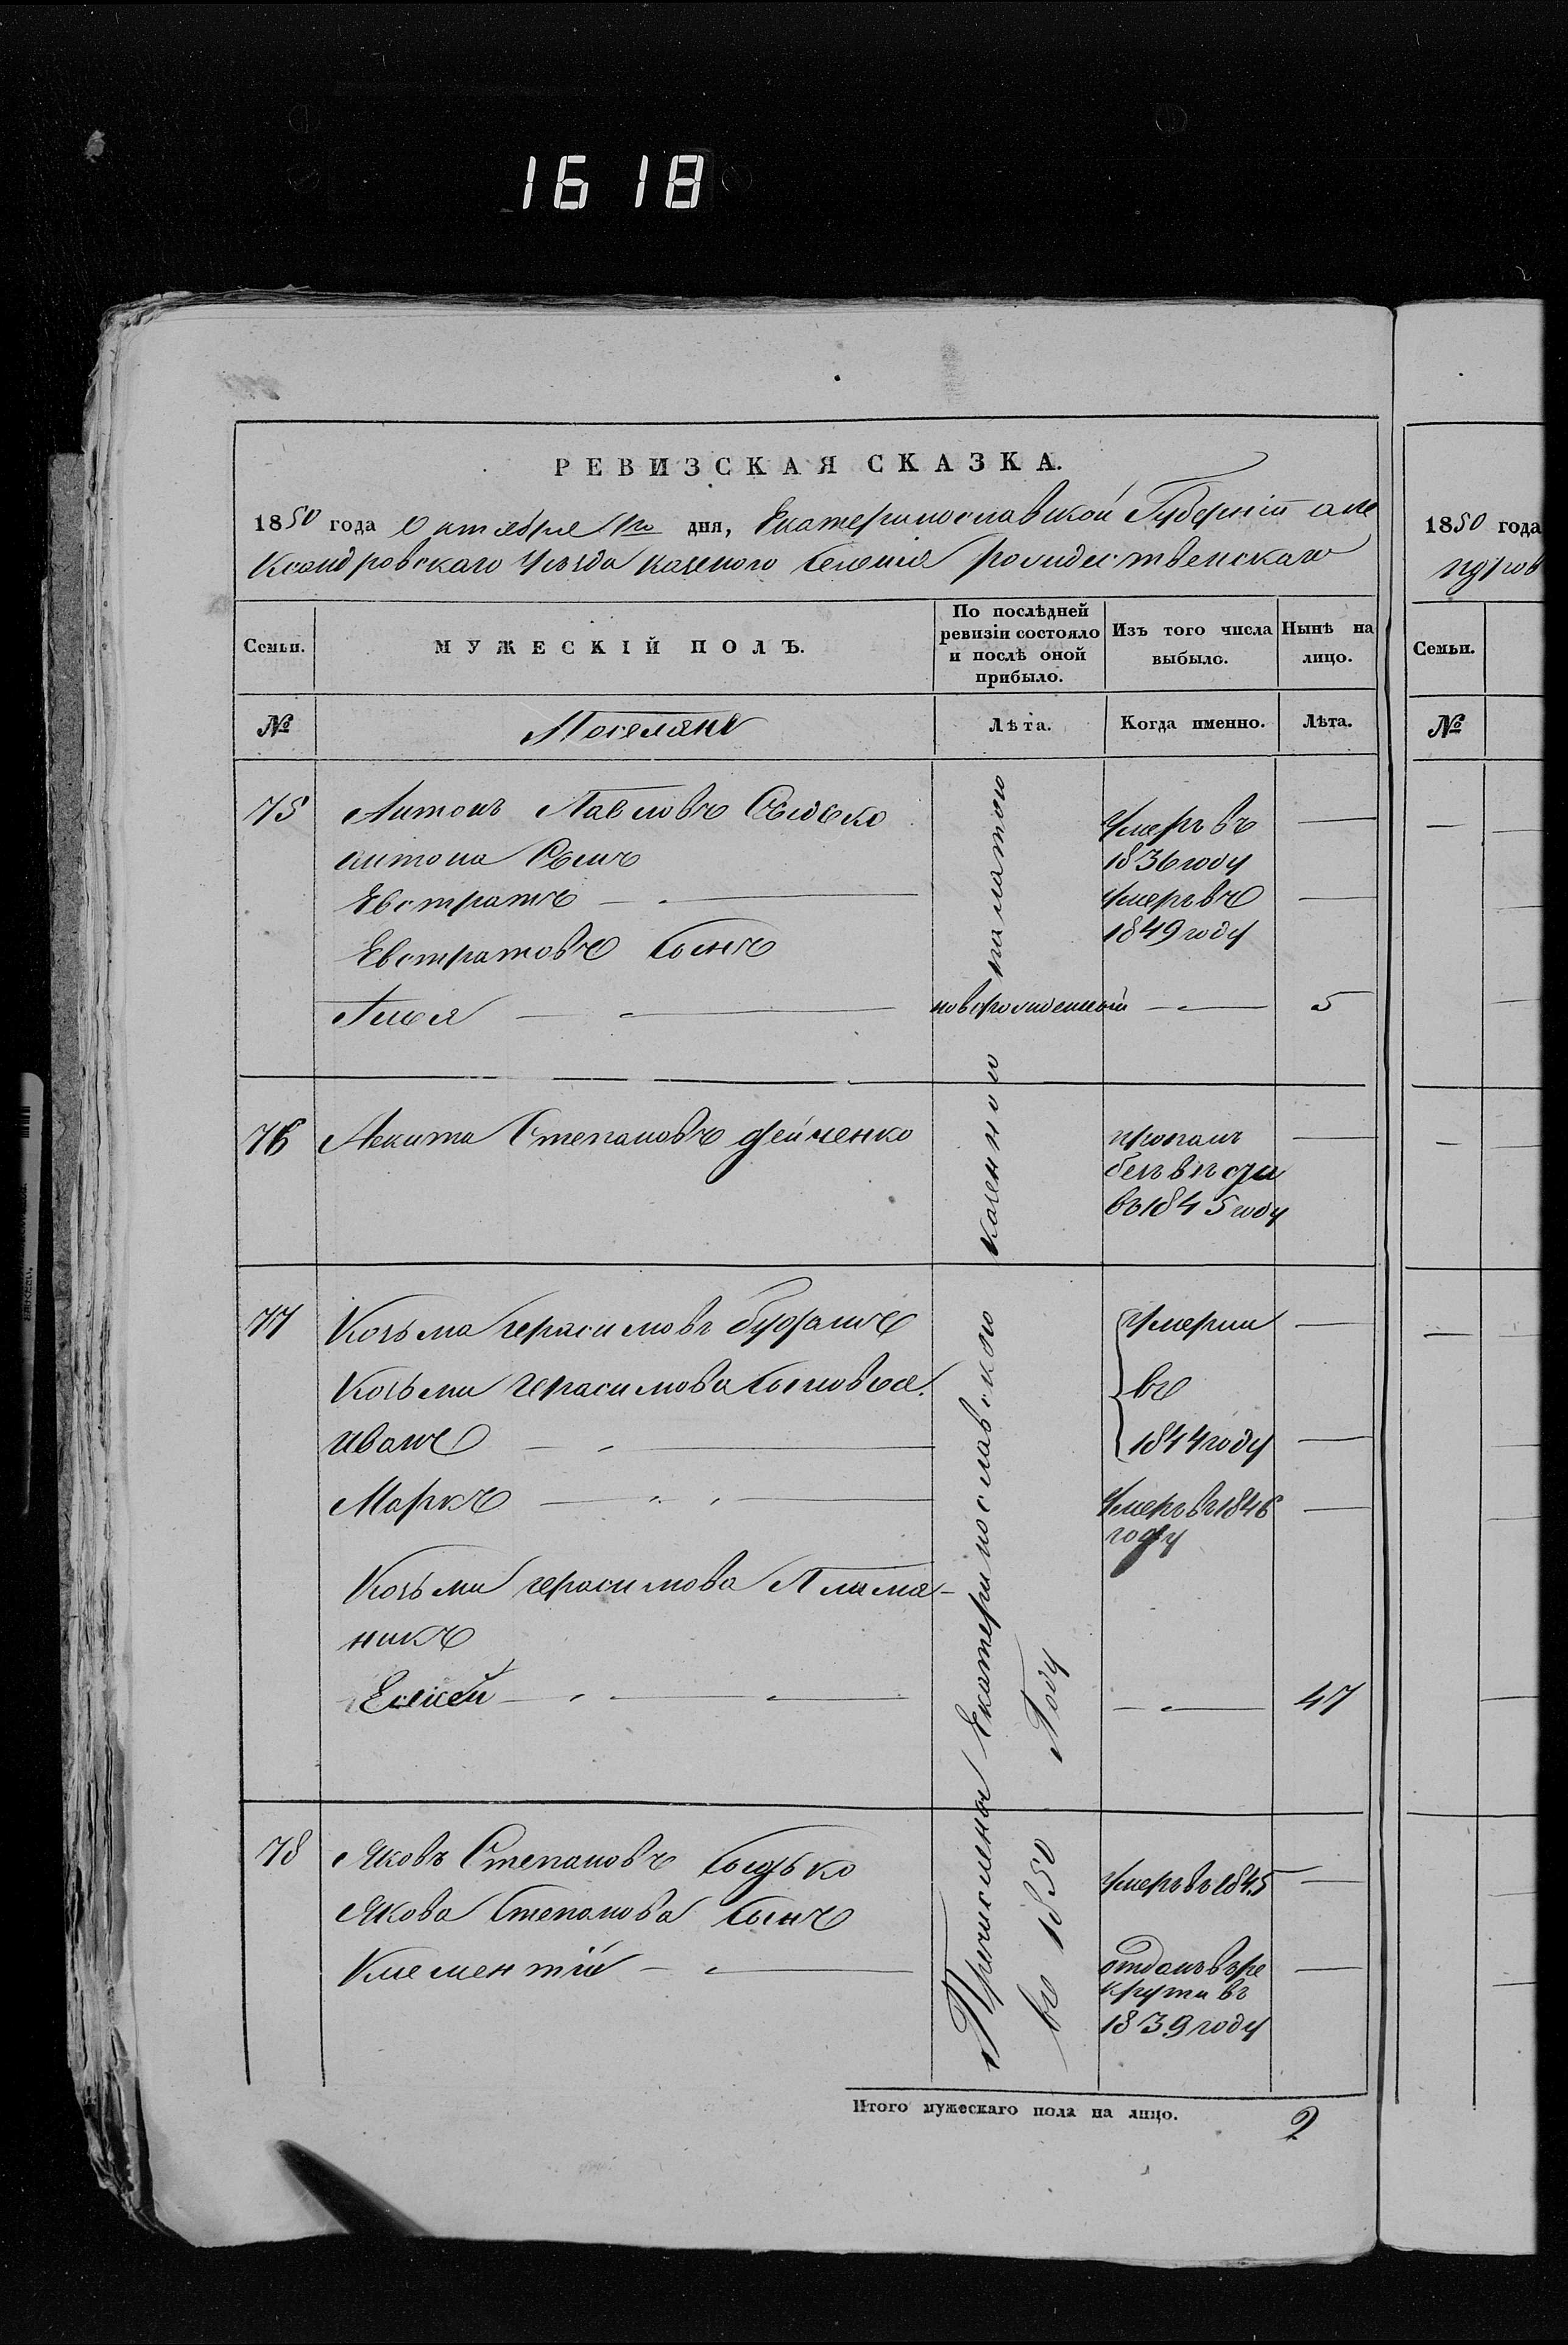 1618
РЕВИЗСКАЯ СКАЗКА.
1850 года Октября 1го дня, Екатеринославской Губерніи але
ксандровскаго Уѣзда казеного Селенія рождественскаго
Семьи.
МУЖЕСКІЙ ПОЛЪ.
По послѣдней ревизіи состояло и послѣ оной прибыло.
Изъ того числа выбыло.
Нынѣ на лицо.
№
Поселяне
Лѣта.
Когда именно.
Лѣта.
75 Антонъ Павловъ Умеръ въ —
антона Сынъ 1836 году
Евстратъ — умеръ въ —
Евстратовъ Сынъ 1849 году
Илья — новорожденный — 5
76 Никита Степановъ пропалъ —
безъ вѣсти
въ 1845 году
77 Козьма герасимовъ Умерли —
Козьмы герасимова Сыновья. въ
иванъ — 1844 году —
Маркъ — Умеръ въ 1846 —
году
Козьмы герасимова Племя-
никъ
Елисей — — 47
78 Яковъ Степановъ Умеръ въ 1845 —
Якова Степанова Сынъ
Клементій — отданъ въ ре —
круты въ
1839 году
Причислены Екатеринославскою казенною палатою
въ 1850 Году
Итого мужескаго пола на лицо. 2
1850 года
Семьи.
№